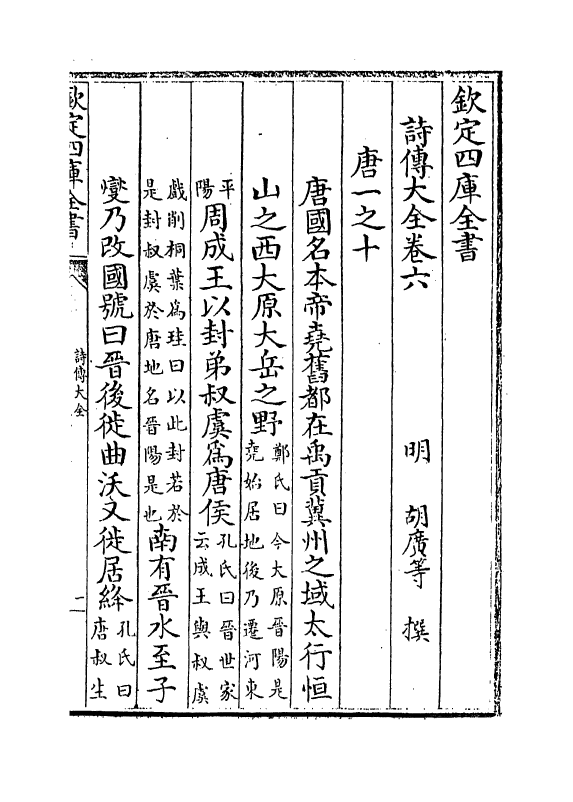 欽定四庫全書
詩傳大全卷六
明 胡廣等 撰
唐一之十
唐國名本帝堯舊都在禹貢冀州之域太行恒
山之西大原大岳之野鄭氏曰今大原晉陽是堯始居地後乃遷河東
平陽周成王以封弟叔虞為唐侯孔氏曰晉世家云成王與叔虞
戲削桐葉為珪曰以此封若於是封叔虞於唐地名晉陽是也南有晉水至子
燮乃改國號曰晉後徙曲沃又徙居絳孔氏曰唐叔生
欽定四庫全書
詩傳大全